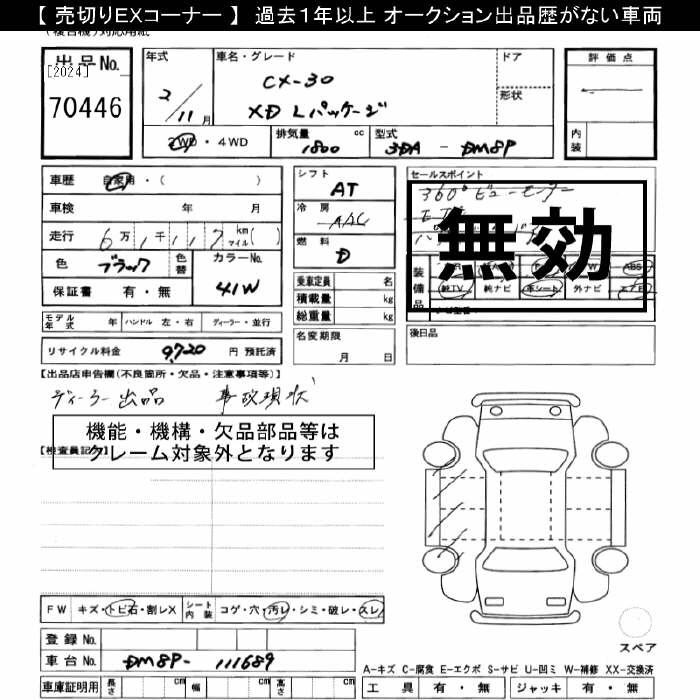 【 売切りEXコーナー 】 過去1年以上 オークション出品歴がない車両
(複合機)対応用紙
出品No.
[2024]
70446
年式
2/11月
車名・グレード
CX-30
XD Lパッケージ
ドア
形状
評価点
内装
2WD・4WD
排気量 cc
1800
型式
3DA - DM8P
車歴 自家用・( )
車検 年 月
走行 6万1千117 km マイル( )
色 ブラック 色替
カラーNo.
41W
保証書 有・無
シフト
AT
冷房
AAC
燃料
D
セールスポイント
360°ビューモニター
無効
装備品
ABS
純TV 純ナビ 革シート 外ナビ エアB
乗車定員 名
積載量 kg
総重量 kg
モデル年式 年 ハンドル 左・右 ディーラー・並行
リサイクル料金 9,720 円 預託済
名変期限
月 日
後日品
【出品店申告欄(不良箇所・欠品・注意事項等)】
ディーラー出品 事故現状
機能・機構・欠品部品等は
クレーム対象外となります
【検査員記入】
FW キズ・トビ石・割レX シート内装 コゲ・穴・汚レ・シミ・破レ・スレ
登録No.
車台No. DM8P- 111689
車庫証明用 長さ cm 幅 cm 高さ cm
スペア
A-キズ C-腐食 E-エクボ S-サビ U-凹ミ W-補修 XX-交換済
工具 有・無 ジャッキ 有・無